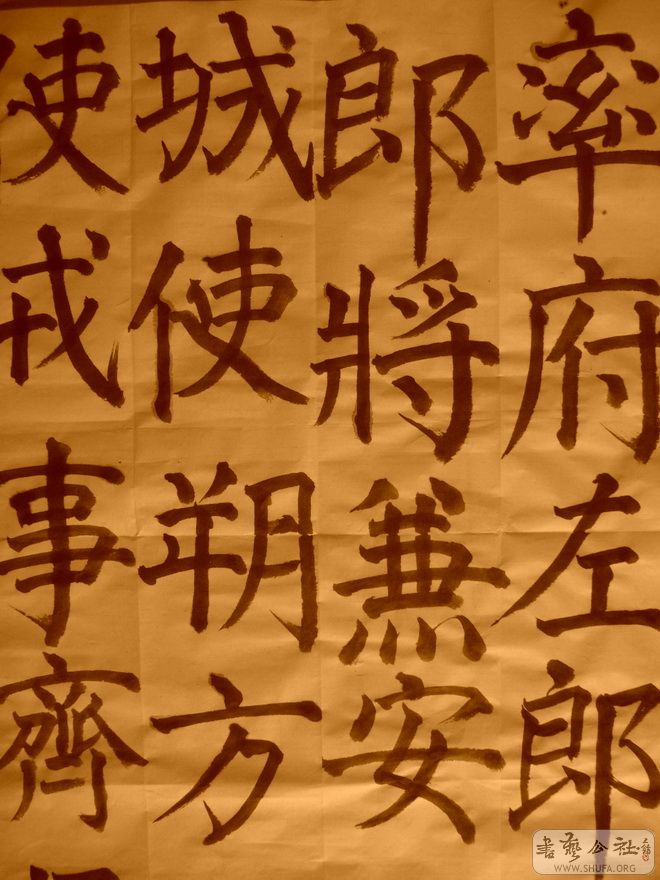 率府左郎
郎將兼安
城使朔方
使戎事齊
書藝公社
WWW.SHUFA.ORG